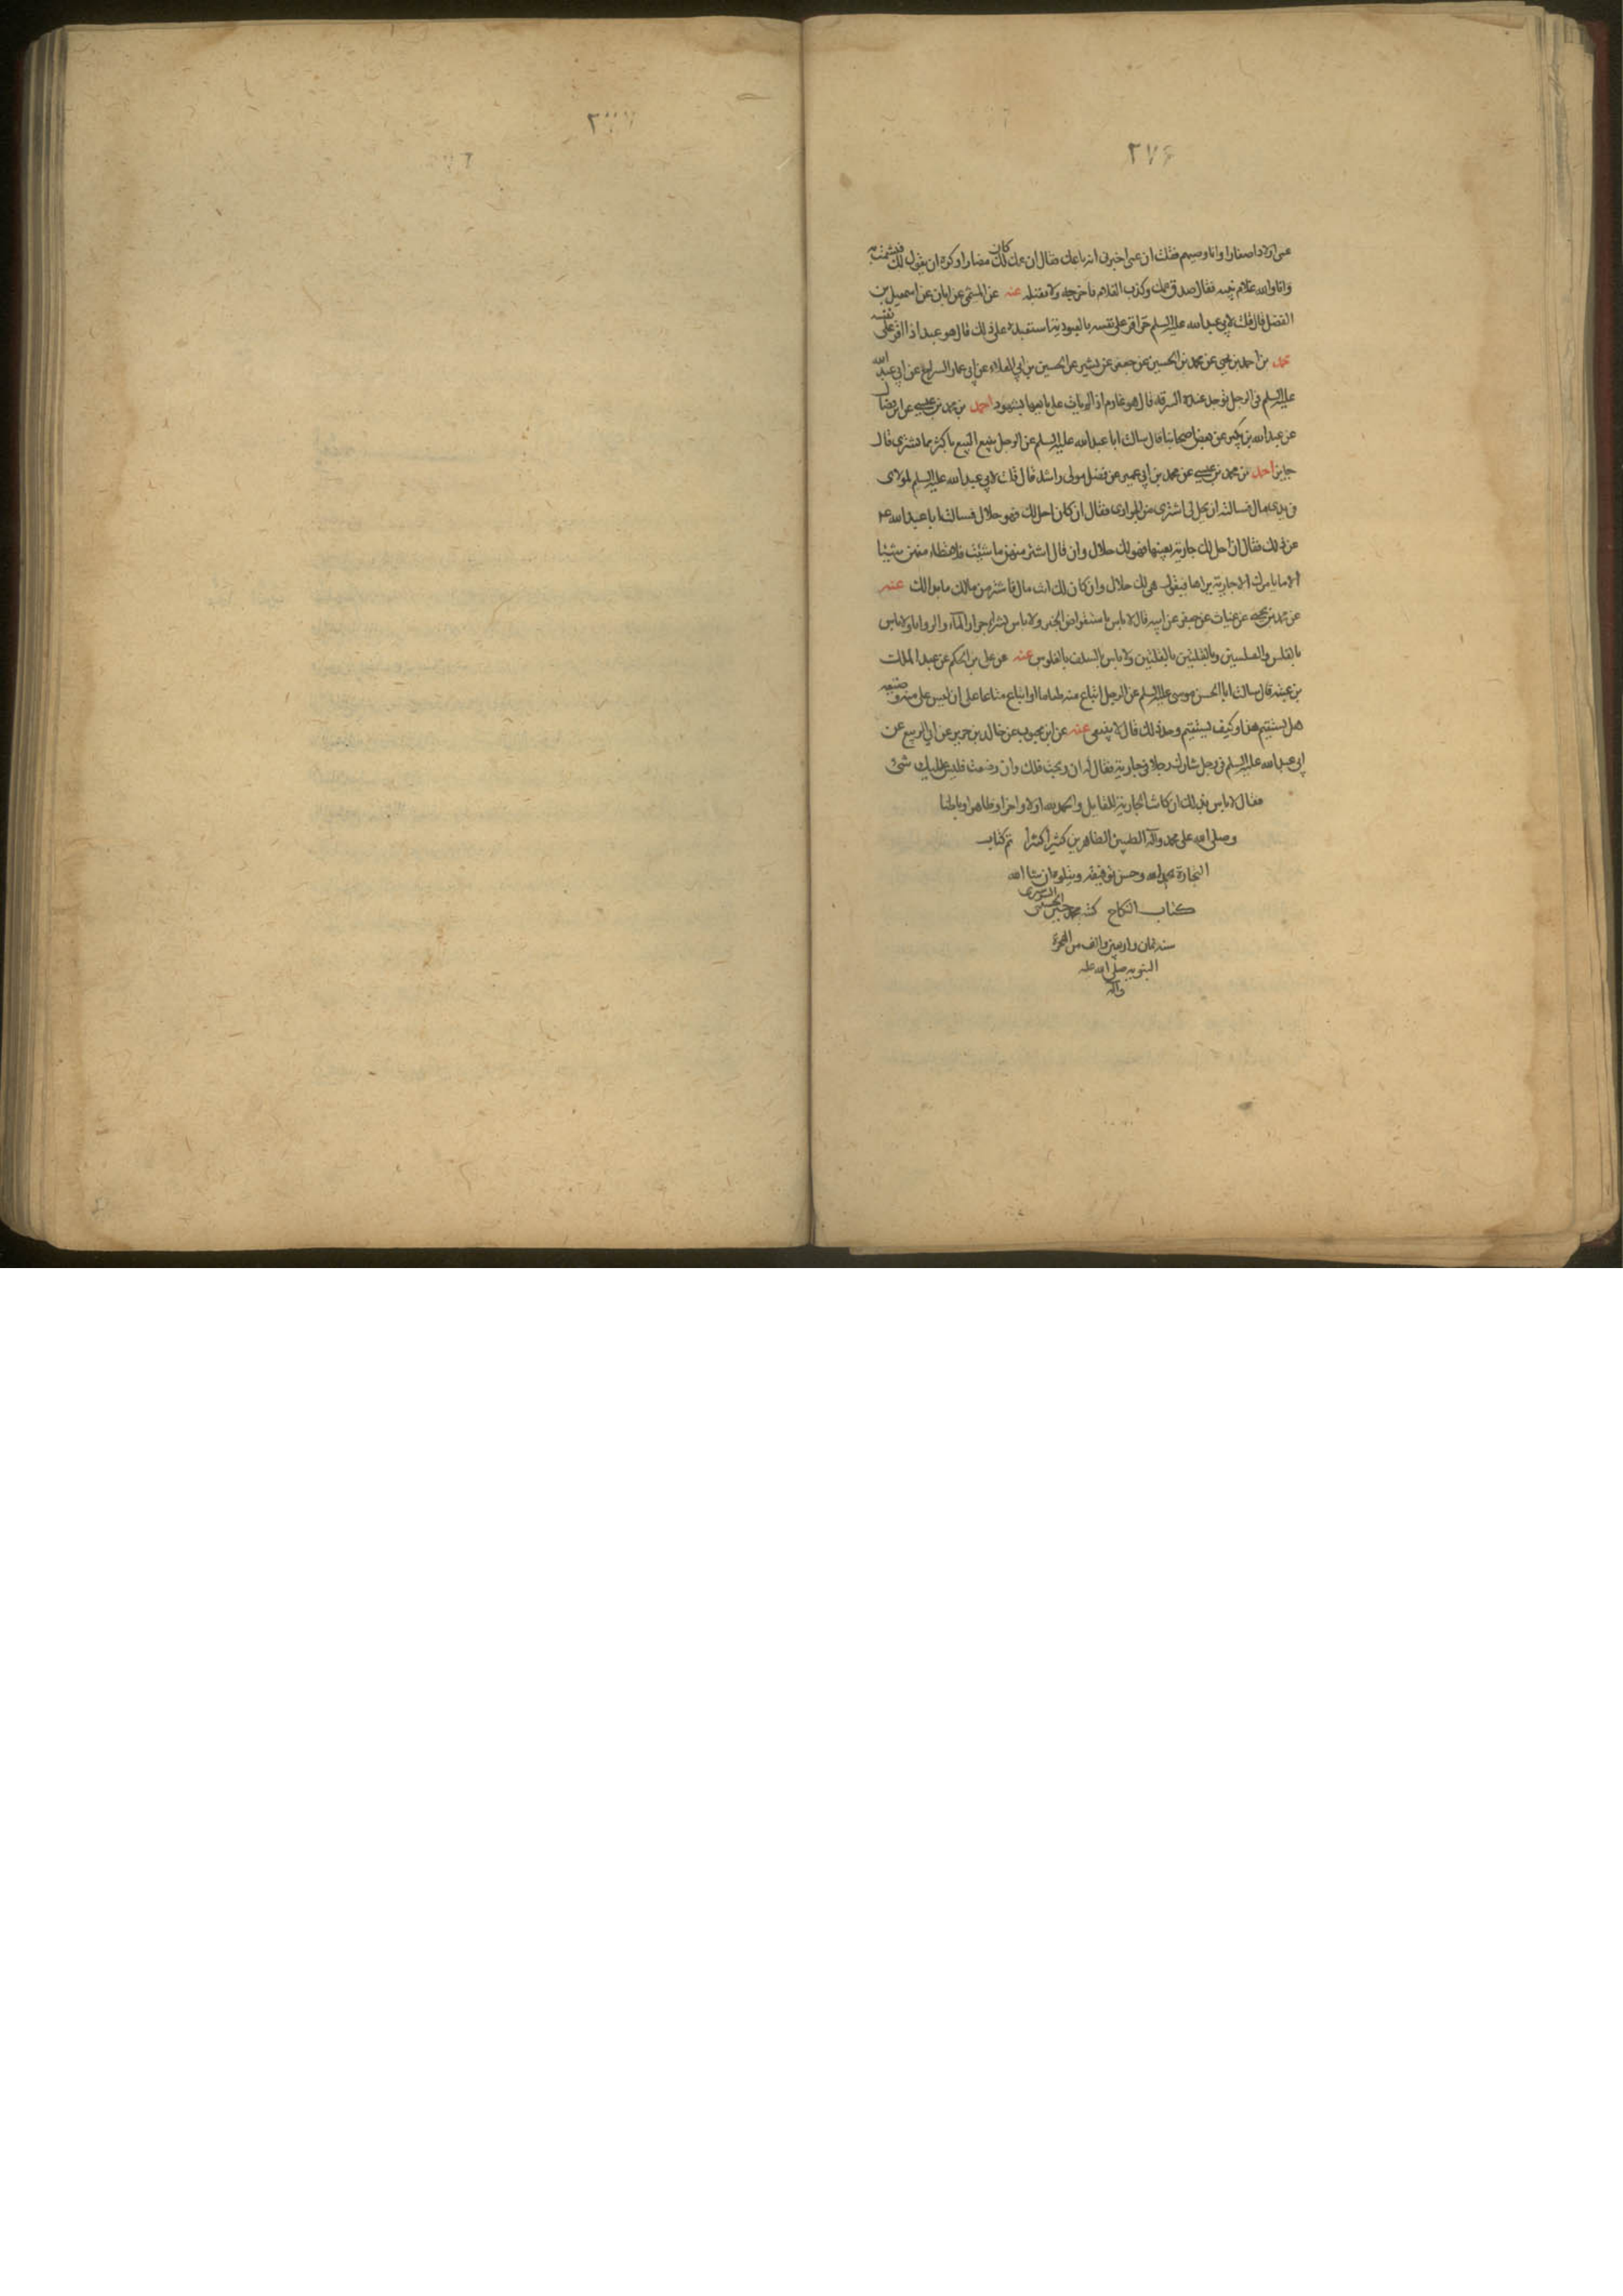 ٢٧۶
عمى اولادا صغارا وانا وصيهم فقلت ان عمى اخبرنى انه باعك فقال ان عمك كان لك مضارا وكره ان يقول لك فيشمت به
وانا والله غلام بنيه فقال صدق عمك وكذب الغلام فاخرجه ولا تقبله عنه عن الميثمى عن ابان عن اسمعيل بن
الفضل قال قلت لابى عبدالله عليه السلم حر اقر على نفسه بالعبودية استعبده على ذلك قال هو عبد اذا اقر على نفسه
محمد بن احمد بن يحيى عن محمد بن الحسين عن جعفر عن بشير عن الحسين بن ابى العلاء عن ابى عمار السراج عن ابى عبد الله
عليه السلم فى الرجل يوجد عنده السرقة قال هو غارم اذا لم يات على بايعها بشهود احمد بن محمد بن عيسى عن ابن فضال
عن عبدالله بن بكير عن بعض اصحابنا قال سالت ابا عبدالله عليه السلم عن الرجل يبيع البيع باكثر مما يشترى قال
جايز احمد بن محمد بن عيسى عن محمد بن ابى عمير عن فضل مولى راشد قال قلت لابى عبدالله عليه السلم لمولاى
فى يدى مال فسالته ان يحل لى اشترى من الجوارى فقال ان كان احل لك فهو حلال فسالت ابا عبدالله ع
عن ذلك فقال ان احل لك جارية بعينها فهو لك حلال وان قال اشتر منهن ما شئت فلا تطأ منهن شيئا
الا ما يامرك الا جارية يراها فيقول هى لك حلال وان كان لك انت مال فاشتر من مالك ما بدا لك عنه
عن محمد بن يحيى عن غياث عن جعفر عن ابيه قال لا باس باستقراض الخبز ولا باس بشراء جرار الماء والروايا ولا باس
بالفلس والفلسين وبالقلتين بالقلتين ولا باس بالسلف بالفلوس عنه عن على بن الحكم عن عبد الملك
بن عتبه قال سالت ابا الحسن موسى عليه السلم عن الرجل ابتاع منه طعاما او ابتاع متاعا على ان ليس على منه وضيعه
هل يستقيم هذا وكيف يستقيم وحد ذلك قال لا ينبغى عنه عن ابن محبوب عن خالد بن جرير عن ابى الربيع عن
ابى عبدالله عليه السلم فى رجل شارك رجلا فى جارية فقال له ان ربحت فلك وان وضعت فليس عليك شئ
فقال لا باس بذلك ان كانت الجارية للقايل والحمد لله اولا واخرا وظاهرا وباطنا
وصلى الله على محمد وآله الطيبين الطاهرين كثيرا كثيرا تم كتاب
التجارة بحمد الله وحسن توفيقه ويتلوه ان شا الله
كتاب النكاح كتبه محمد
سنه ثمان واربعين والف من الهجرة
النبويه صلى الله عليه
وآله